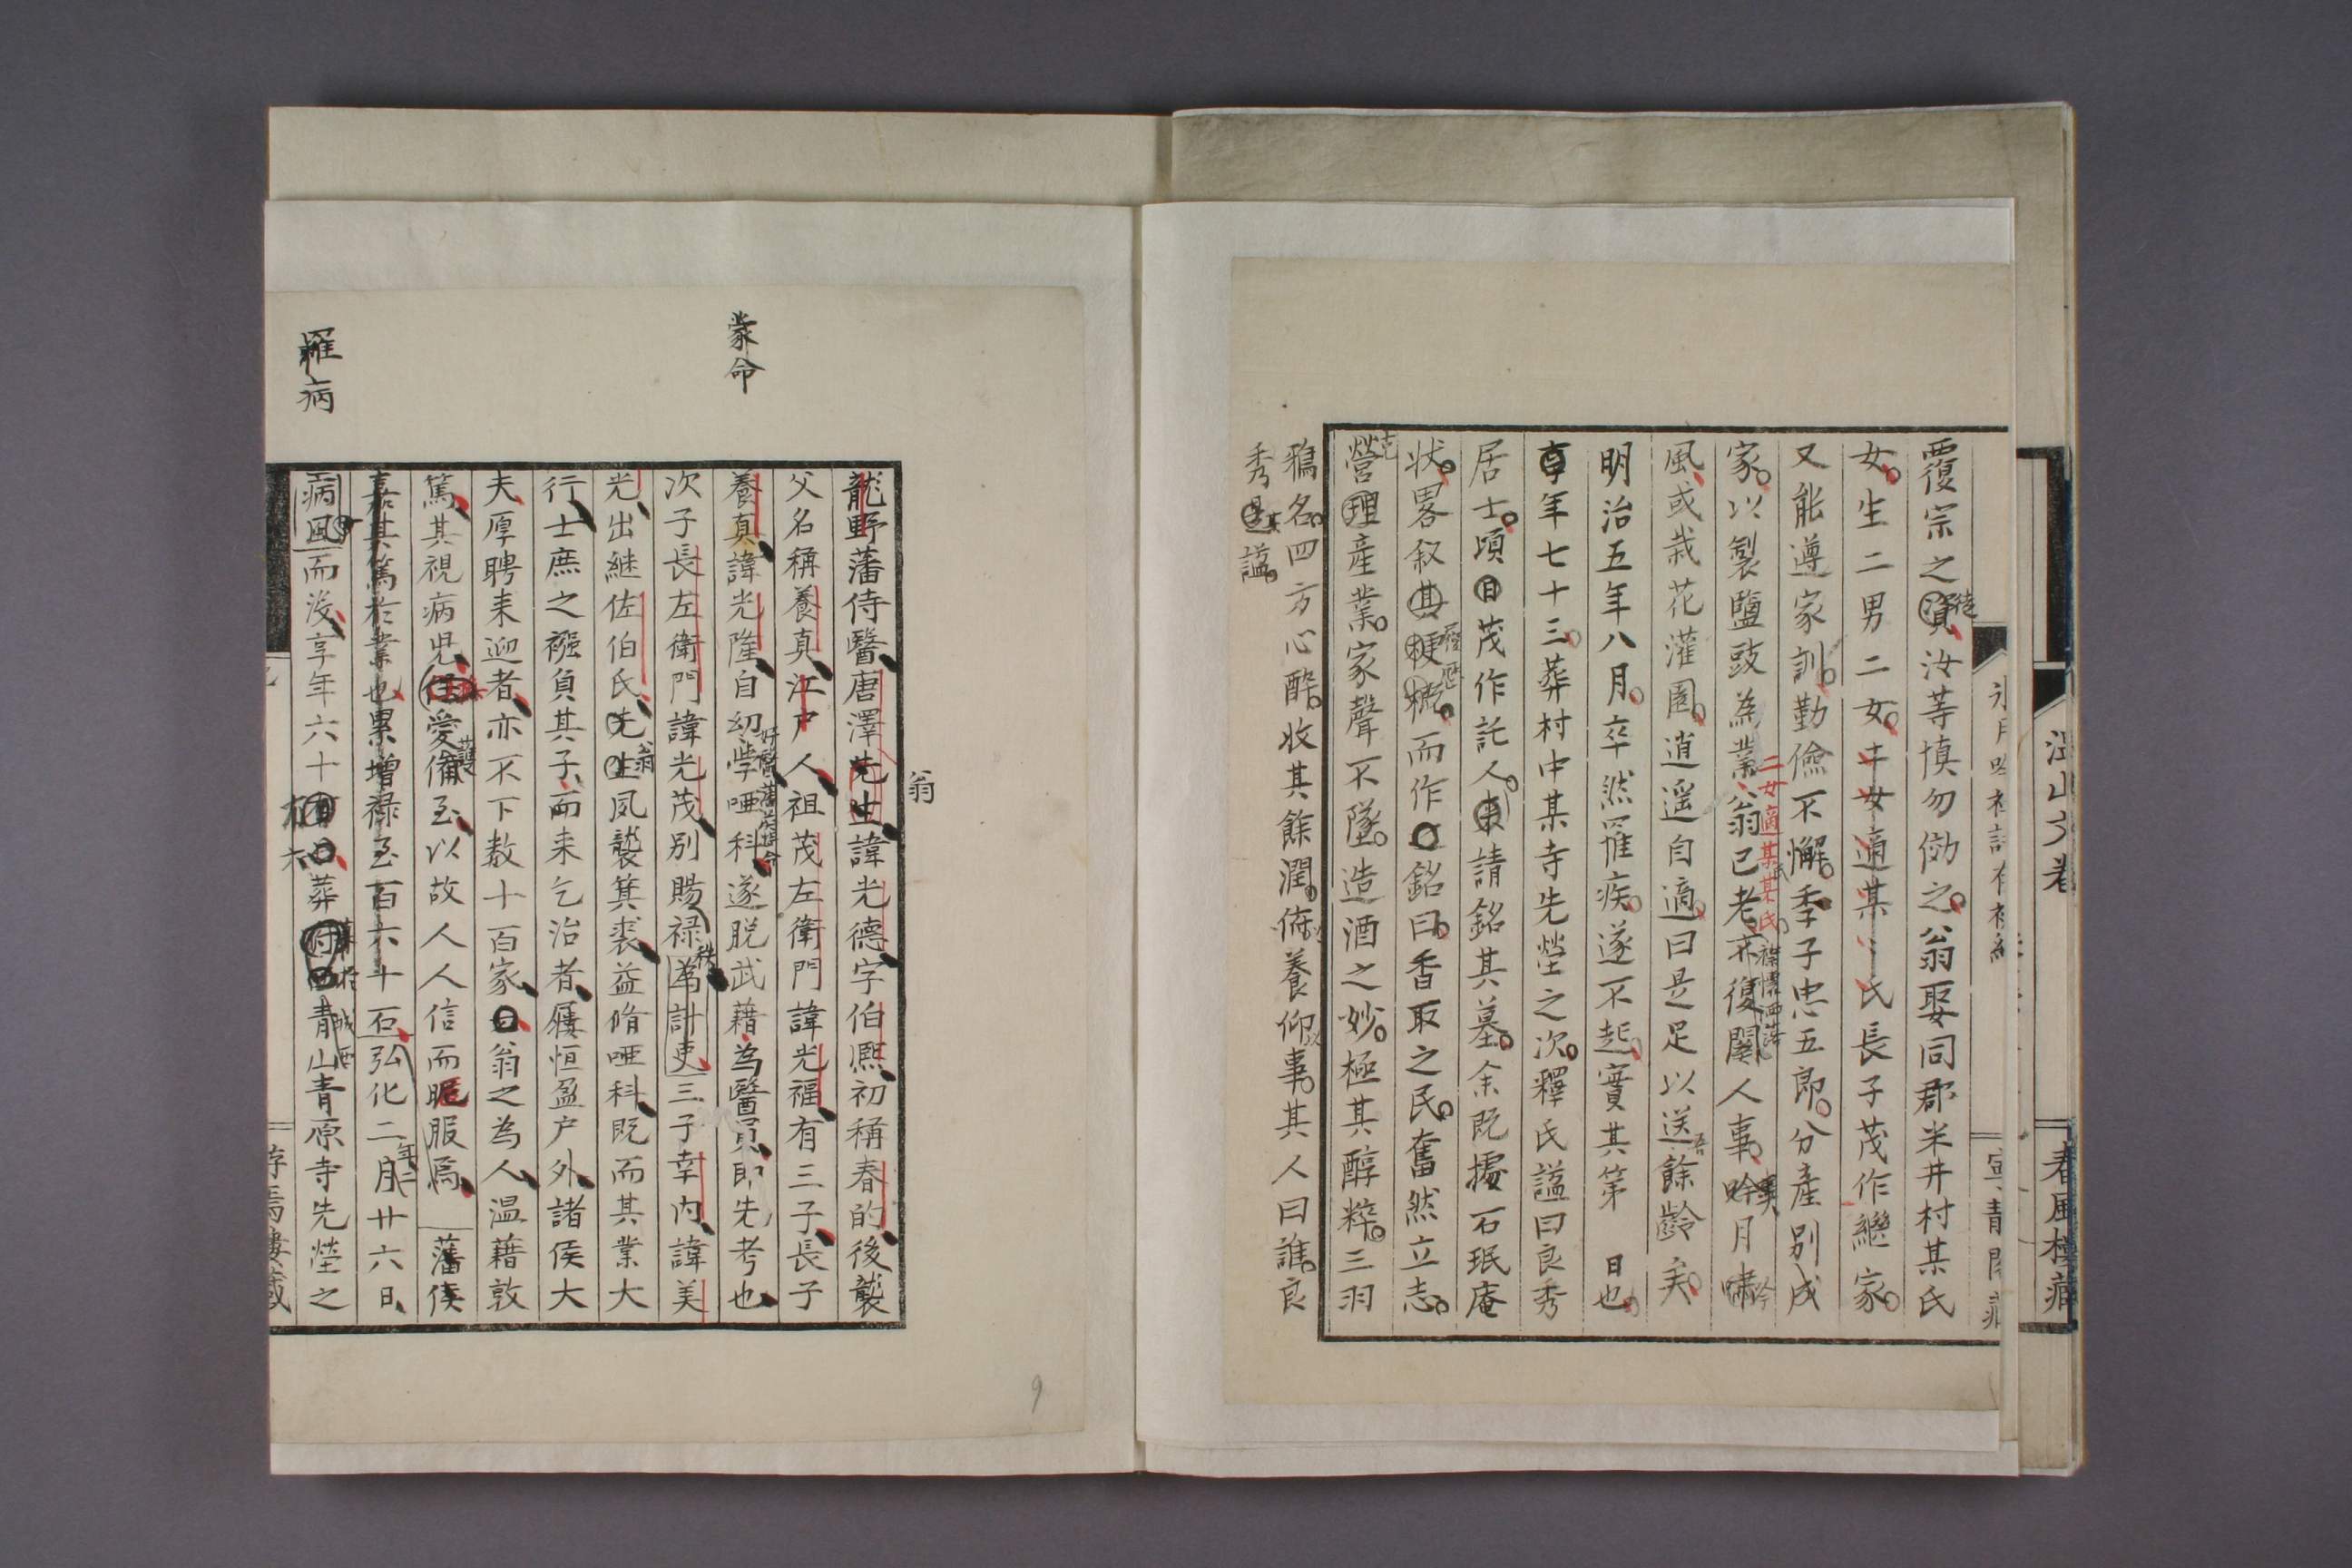 春風樓藏
覆宗之資徒汝等慎勿傚之翁娶同郡米井村某氏
女生二男二女士女適某々氏長子茂作繼家
又能遵家訓勤儉不懈季子忠五郎分產別成
二女適某某氏
家以製鹽豉為業翁已老不復關人事吟月嘯
風或栽花灌園逍遥自適曰是足以送吾餘齡矣
明治五年八月卒然罹疾遂不起實其第　日也
享年七十三葬村中某寺先塋之次釋氏謚曰良秀
居士頃日茂作託人東請銘其墓余既據石珉庵
状畧叙其梗概而作銘曰香取之民奮然立志
營理產業家聲不墜造酒之妙極其醇粹三羽
鴉名四方心醉收其餘潤俯養仰事其人曰誰良
秀其謚
翁
龍野藩侍醫唐澤先生諱光德字伯熈初稱春的後襲
父名稱養真江戸人祖茂左衛門諱光福有三子長子
蒙命
養真諱光隆自幼學啞科遂脱武藉為醫員即先考也
次子長左衛門諱光茂別賜禄秩為計吏三子幸内諱美
光出継佐伯氏先生翁夙襲箕裘益脩啞科既而其業大
行士庶之襁負其子而来乞治者屨恒盈户外諸侯大
夫厚聘来迎者亦不下数十百家翁之為人温藉敦
篤其視病児愛護備至以故人人信而服焉藩侯
嘉其篤於業也累增禄至百六十石弘化二年二月廿六日
罹病
病風而没享年六十葬青山青原寺先塋之
9